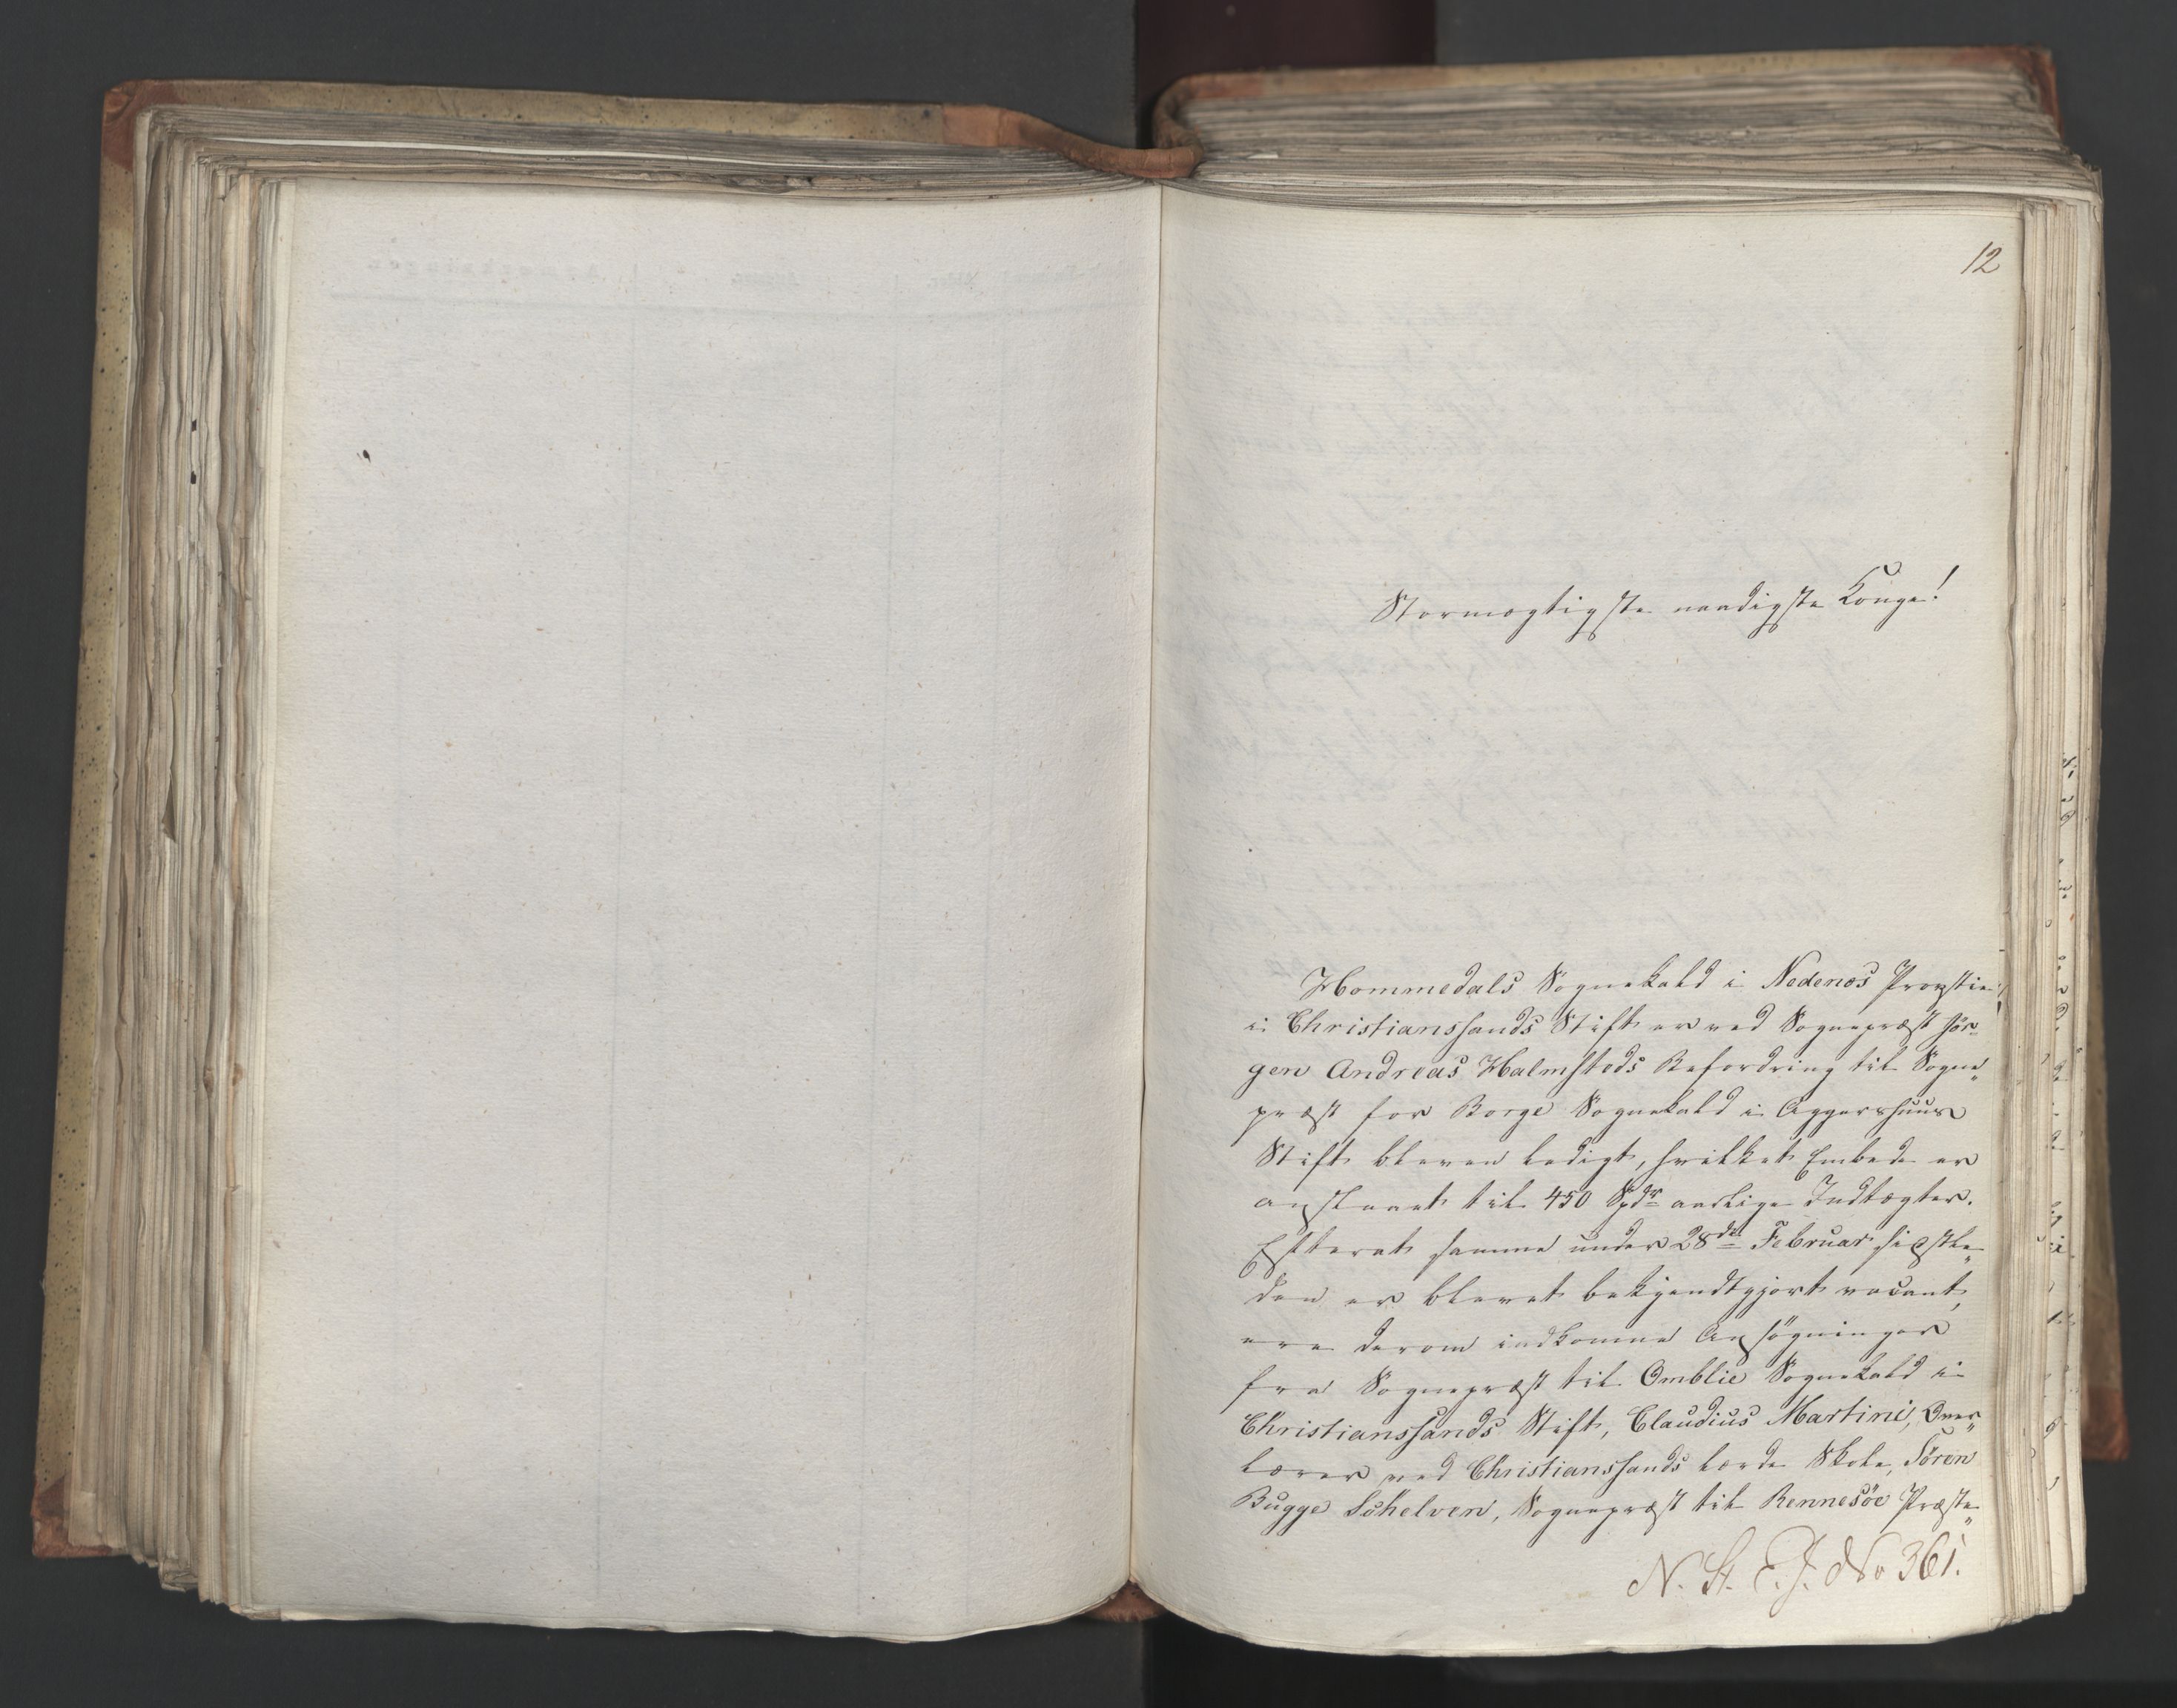 12
Stormægtigste naadigste Konge!
Hommedals Sognekald i Nedenæs Provstie
i Christianssands Stift er ved Sognepræst Jör-
gen Andreas Halmsteds Befordring til Sogne„
præst for Borge Sognekald i Aggershuus
Stift bleven ledigt, hvilket Embede er
anslaaet til 450 Spdr aarlige Indtægter.
Efterat samme under 28de Februar sidstle„
den er blevet bekjendtgjort vacant,
ere derom indkomne Ansögninger
fra Sognepræst til Omblie Sognekald i
Christianssands Stift, Claudius Martini, Over„
lærer ved Christianssands lærde Skole, Sören
Bugge Schelven, Sognepræst til Rennesöe Præste„
N. St. E. J. No 361.